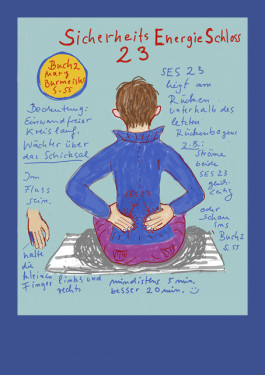 Sicherheits EnergieSchloss
23
Buch 2
Mary
Burmeister
S. 55
SES 23
liegt am
Rücken
unterhalb des
letzten
Rückenbogens
z.B.:
Ströme
beide
SES 23
gleich-
zeitig
oder
schau
ins
Buch 2
S. 55
Bedeutung:
Einwandfreier
Kreislauf.
Wächter über
das Schicksal
Im
Fluss
sein.
SES 23
halte
die
kleinen
Finger
links und
rechts
mindestens 5 min.
besser 20 min.